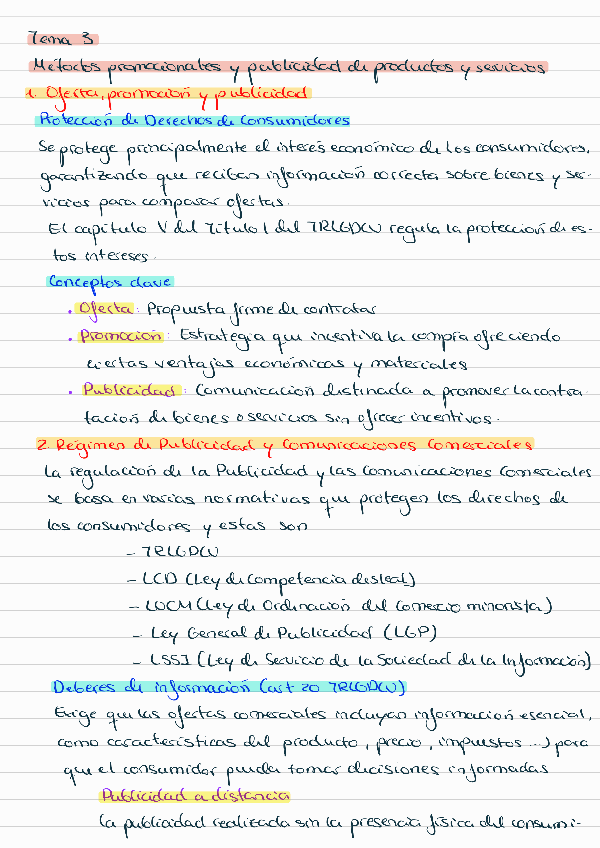 Tema 3
Métodos promocionales y publicidad de productos y servicios
1. Oferta, promoción y publicidad
Protección de Derechos de Consumidores
Se protege principalmente el interés económico de los consumidores,
garantizando que reciban información correcta sobre bienes y ser-
vicios para comparar ofertas.
El capítulo V del Título I del TRLGDCU regula la protección de es-
tos intereses.
Conceptos clave
• Oferta: Propuesta firme de contratar
• Promoción: Estrategia que incentiva la compra ofreciendo
ciertas ventajas económicas y materiales
• Publicidad: Comunicación destinada a promover la contra
tación de bienes o servicios sin ofrecer incentivos.
2. Régimen de Publicidad y Comunicaciones Comerciales
La regulación de la Publicidad y las Comunicaciones Comerciales
se basa en varias normativas que protegen los derechos de
los consumidores y estas son
- TRLGDCU
- LCD (Ley de Competencia desleal)
- LOCM (Ley de Ordenación del Comercio minorista)
- Ley General de Publicidad (LGP)
- LSSI (Ley de Servicio de la Sociedad de la Información)
Deberes de información (art 20 TRLGDCU)
Exige que las ofertas comerciales incluyan información esencial,
como características del producto, precio, impuestos ...) para
que el consumidor pueda tomar decisiones informadas
Publicidad a distancia
La publicidad realizada sin la presencia física del consumi-